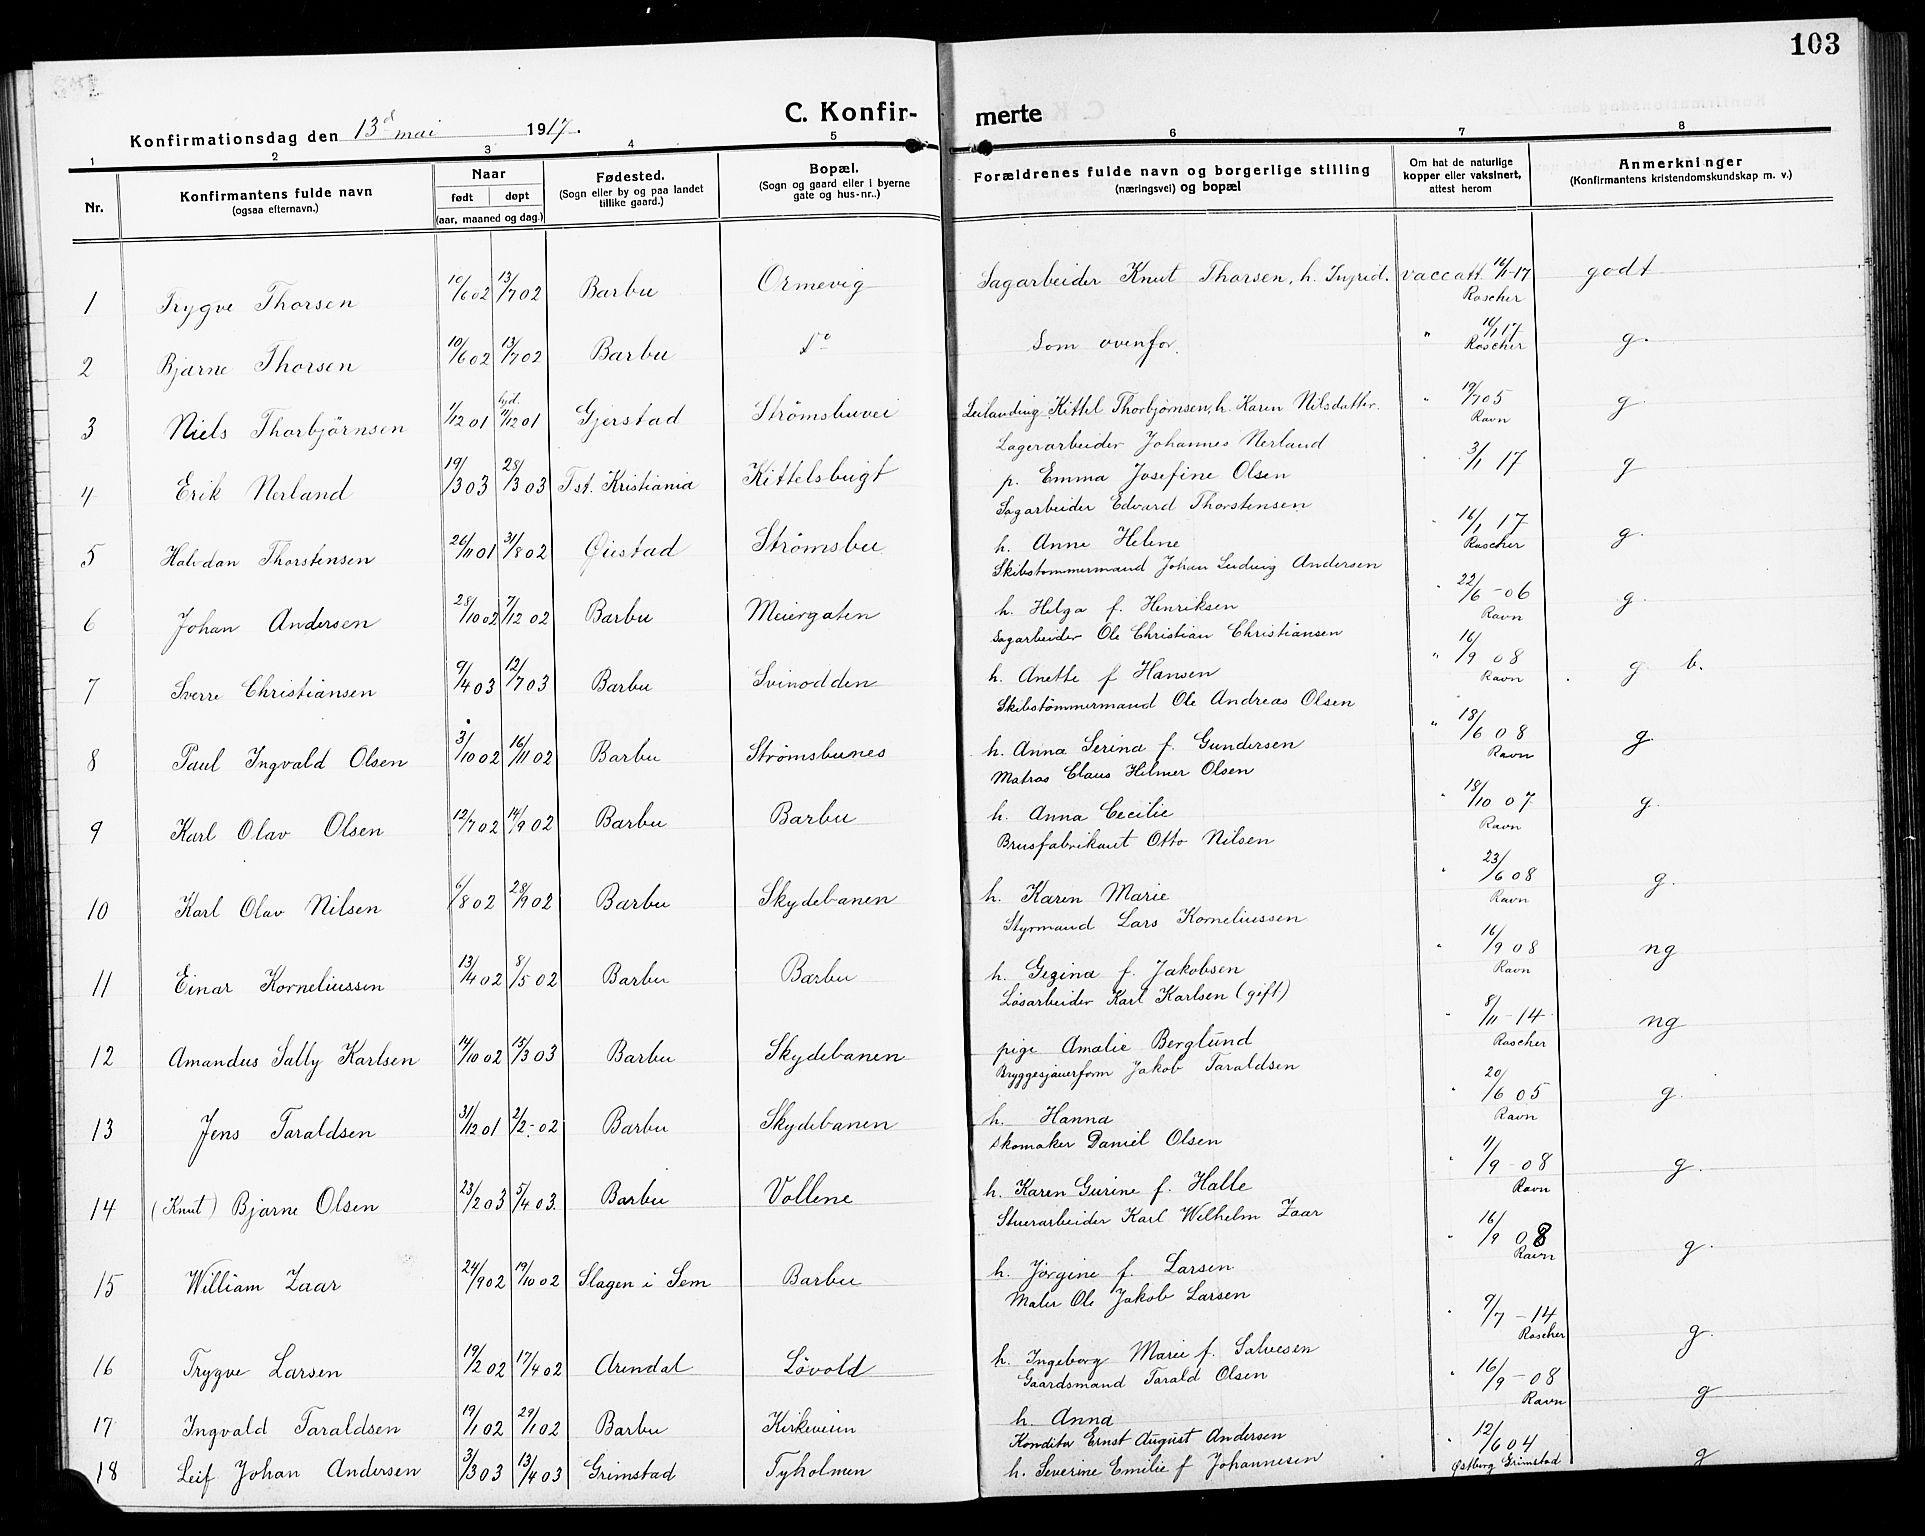 103
C. Konfir-
merte
Konfirmationsdag den 13d mai 1917.
1 2 3 4 5 6 7 8
Nr.
Konfirmantens fulde navn
(ogsaa efternavn.)
Naar
født døpt
(aar, maaned og dag.)
Fødested.
(Sogn eller by og paa landet
tillike gaard.)
Bopæl.
(Sogn og gaard eller i byerne
gate og hus-nr.)
Forældrenes fulde navn og borgerlige stilling
(næringsvei) og bopæl
Om hat de naturlige
kopper eller vaksinert,
attest herom
Anmerkninger
(Konfirmantens kristendomskundskap m. v.)
1 Trygve Thorsen 10/6 02 13/7 02 Barbu Ormevig Sagarbeider Knut Thorsen, h. Ingrid. vacc att 16/1-17 godt
Roscher
2 Bjarne Thorsen 10/6 02 13/7 02 Barbu do Som ovenfor. " 16/1 17 g.
Roscher
3 Niels Thorbjörnsen 1/12 01 11/12 01 Gjerstad Strømsbuvei Leilænding Kittel Thorbjørnsen, h. Karen Nilsdatter. " 19/7 05 g.
Ravn
Lagerarbeider Johannes Nerland
4 Erik Nerland 19/3 03 28/3 03 Tst. Kristiania Kittelsbugt p. Emma Josefine Olsen " 3/1 17 g
Sagarbeider Edvard Thorstensen
5 Halvdan Thorstensen 26/11 01 31/8 02 Øiestad Strømsbu h. Anne Helene " 16/1 17 g.
Roscher
Skibstømmermand Johan Ludvig Andersen
6 Johan Andersen 28/10 02 7/12 02 Barbu Meiergaten h. Helga f. Henriksen " 22/6-06 g.
Ravn
Sagarbeider Ole Christian Christiansen
7 Sverre Christiansen 9/4 03 12/7 03 Barbu Svinodden h. Anette f Hansen " 16/9 08 g. b.
Ravn
Skibstömmermand Ole Andreas Olsen
8 Paul Ingvald Olsen 3/10 02 16/11 02 Barbu Strømsbunes h. Anna Serina f. Gundersen " 18/6 08 g.
Ravn
Matros Claus Helmer Olsen
9 Karl Olav Olsen 12/7 02 14/9 02 Barbu Barbu h. Anna Cecilie " 18/10 07 g.
Ravn
Brusfabrikant Otto Nilsen
10 Karl Olav Nilsen 6/8 02 28/9 02 Barbu Skydebanen h. Karen Marie " 23/6 08 g.
Ravn
Styrmand Lars Korneliussen
11 Einar Korneliussen 13/4 02 8/5 02 Barbu Barbu h. Gezina f. Jakobsen " 16/9 08 ng
Ravn
Løsarbeider Karl Karlsen (gift)
12 Amandus Sally Karlsen 14/10 02 15/3 03 Barbu Skydebanen pige Amalie Berglund " 8/11-14 ng
Roscher
Bryggesjauerform Jakob Taraldsen
13 Jens Taraldsen 31/12 01 2/2-02 Barbu Skydebanen h. Hanna " 20/6 05 g.
Ravn
Skomaker Daniel Olsen
14 (Knut) Bjarne Olsen 23/2 03 5/4 03. Barbu Vollene h. Karen Gurine f. Halle " 11/9-08 g.
Ravn
Stuerarbeider Karl Wilhelm Zaar
15 William Zaar 24/9 02 19/10 02 Slagen i Sem Barbu h. Jørgine f. Larsen " 16/9 08 g.
Ravn
Maler Ole Jakob Larsen
16 Trygve Larsen 19/2 02 17/4 02 Arendal Løvold h. Ingeborg Marie f. Salvesen " 9/7-14 g.
Roscher
Gaardsmand Tarald Olsen
17 Ingvald Taraldsen 19/1 02 29/1 02 Barbu Kirkeveien h. Anna " 16/9-08 g
Ravn
Konditor Ernst August Andersen
18 Leif Johan Andersen 3/3 03 13/4 03 Grimstad Tyholmen h. Severine Emilie f Johannesen " 12/6 04 g
Østberg Grimstad